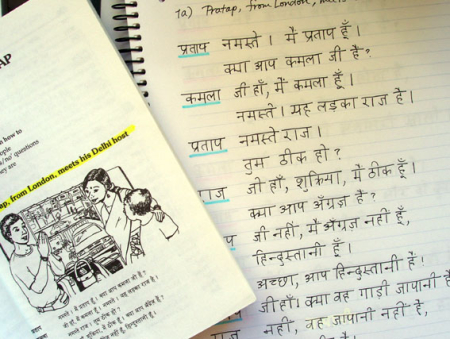 1a) Pratap, from London, meets
प्रताप नमस्ते । मैं प्रताप हूँ ।
क्या आप कमला जी हैं ?
कमला जी हाँ, मैं कमला हूँ ।
नमस्ते । यह लड़का राज है ।
प्रताप नमस्ते राज ।
तुम ठीक हो ?
राज जी हाँ, शुक्रिया, मैं ठीक हूँ ।
क्या आप अंग्रेज़ हैं ?
प जी नहीं, मैं अंग्रेज़ नहीं हूँ,
हिन्दुस्तानी हूँ ।
अच्छा, आप हिन्दुस्तानी हैं !
जी हाँ । क्या वह गाड़ी जापानी है
नहीं, वह जापानी नहीं है,
AP
how to
ople
no questions
ey are
ap, from London, meets his Delhi host